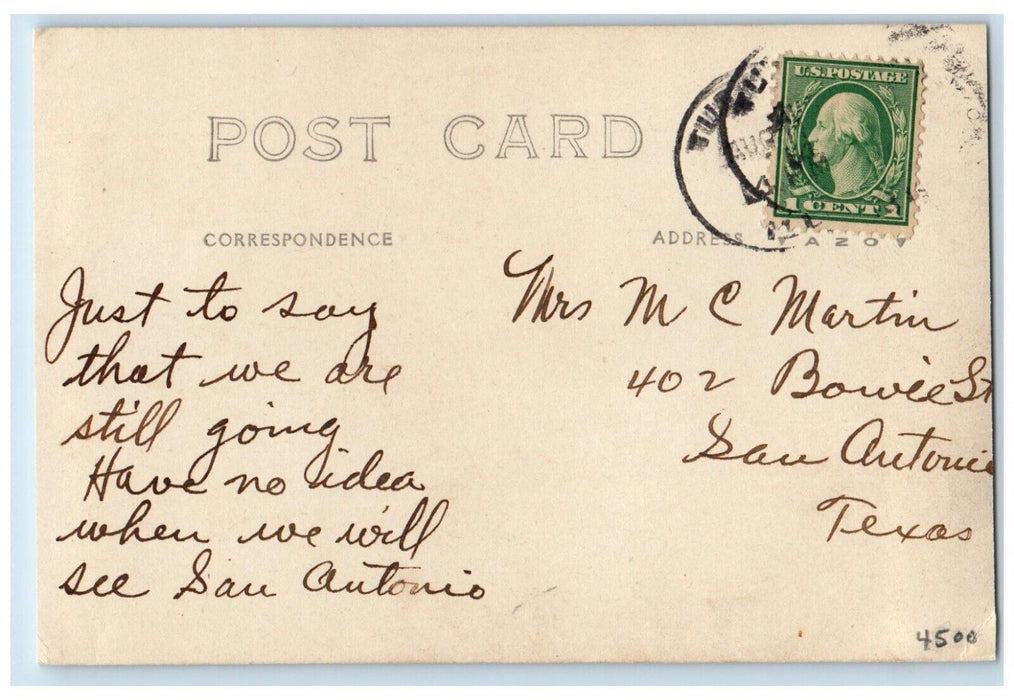 POST CARD
CORRESPONDENCE
ADDRESS
AZO
U.S.POSTAGE
1 CENT 1
Just to say
that we are
still going
Have no idea
when we will
see San Antonio
Mrs M C Martin
402 Bowie St
San Antonio
Texas
4500